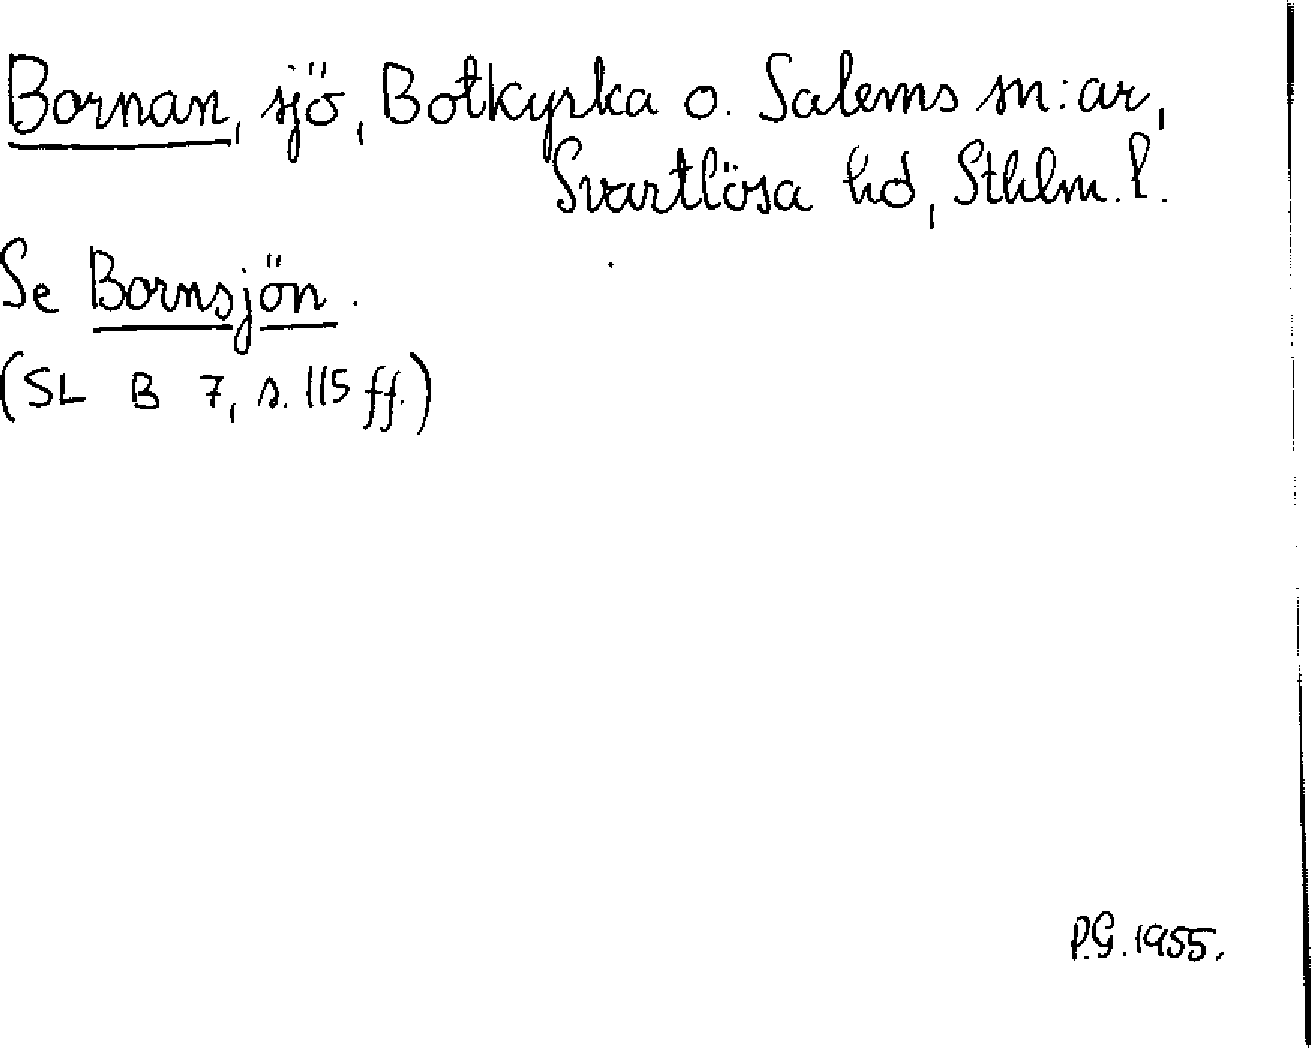 Bornan, sjö, Botkyrka o. Salems sn:ar,
Svartlösa hd, Sthlm. l.
Se Bornsjön.
(SL B 7, s. 115 ff.)
P.G. 1955.